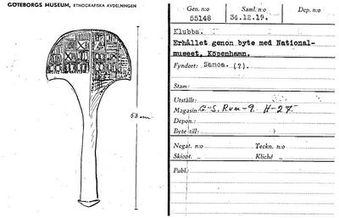 GÖTEBORGS MUSEUM, ETNOGRAFISKA AVDELNINGEN
Gen. n:o
55148
Saml. n:o
34.12.19.
Dep. n:o
Klubba.
Erhållet genom byte med National-
museet, Köpenhamn.
Fyndort: Samoa. (?).
Stam:
Utställ:
Magasin G.S. Rum-9 H-27
Depon.:
Byte till:
Negat. n:o
Teckn. n:o
Skiopt.
Kliché
Publ: